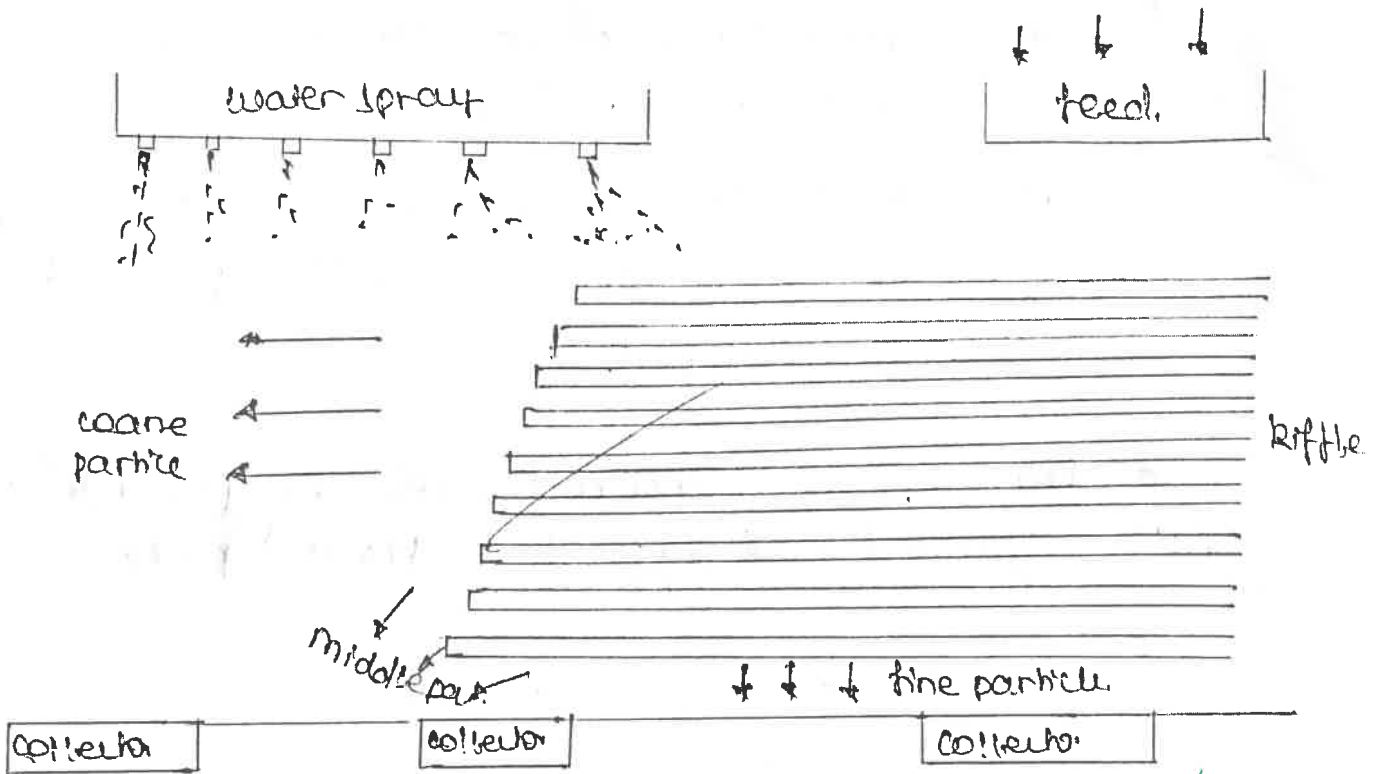 water spray
feed.
coarse
particle
Riffle
middle
par.
fine particle
collector
collector
collector